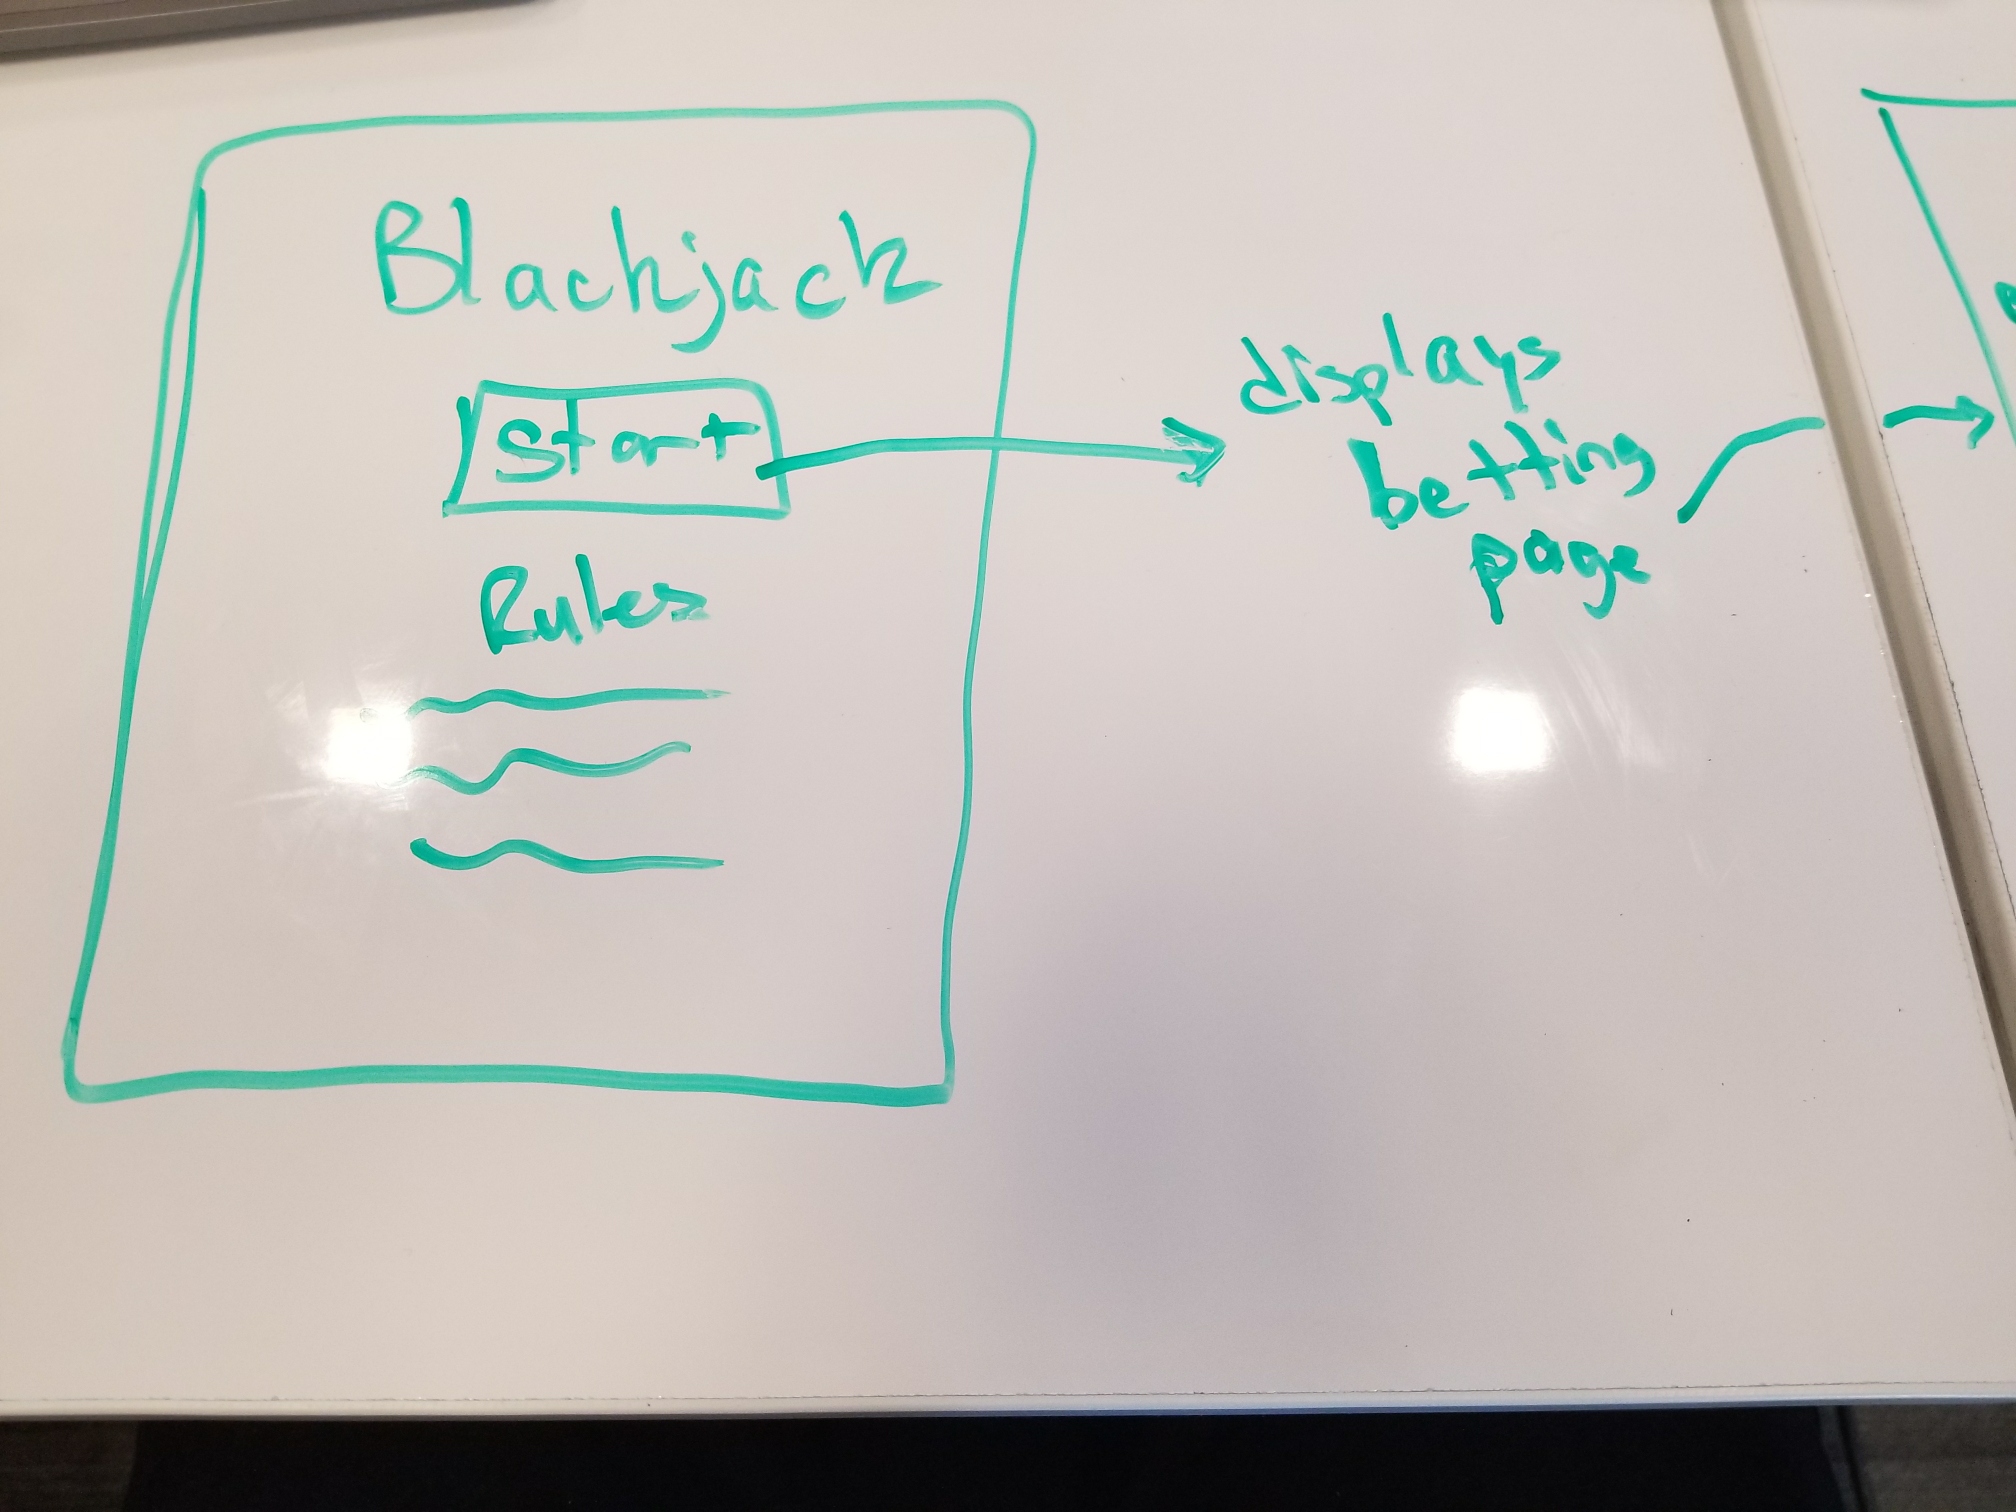 Blackjack
Start
Rules
displays
betting
page